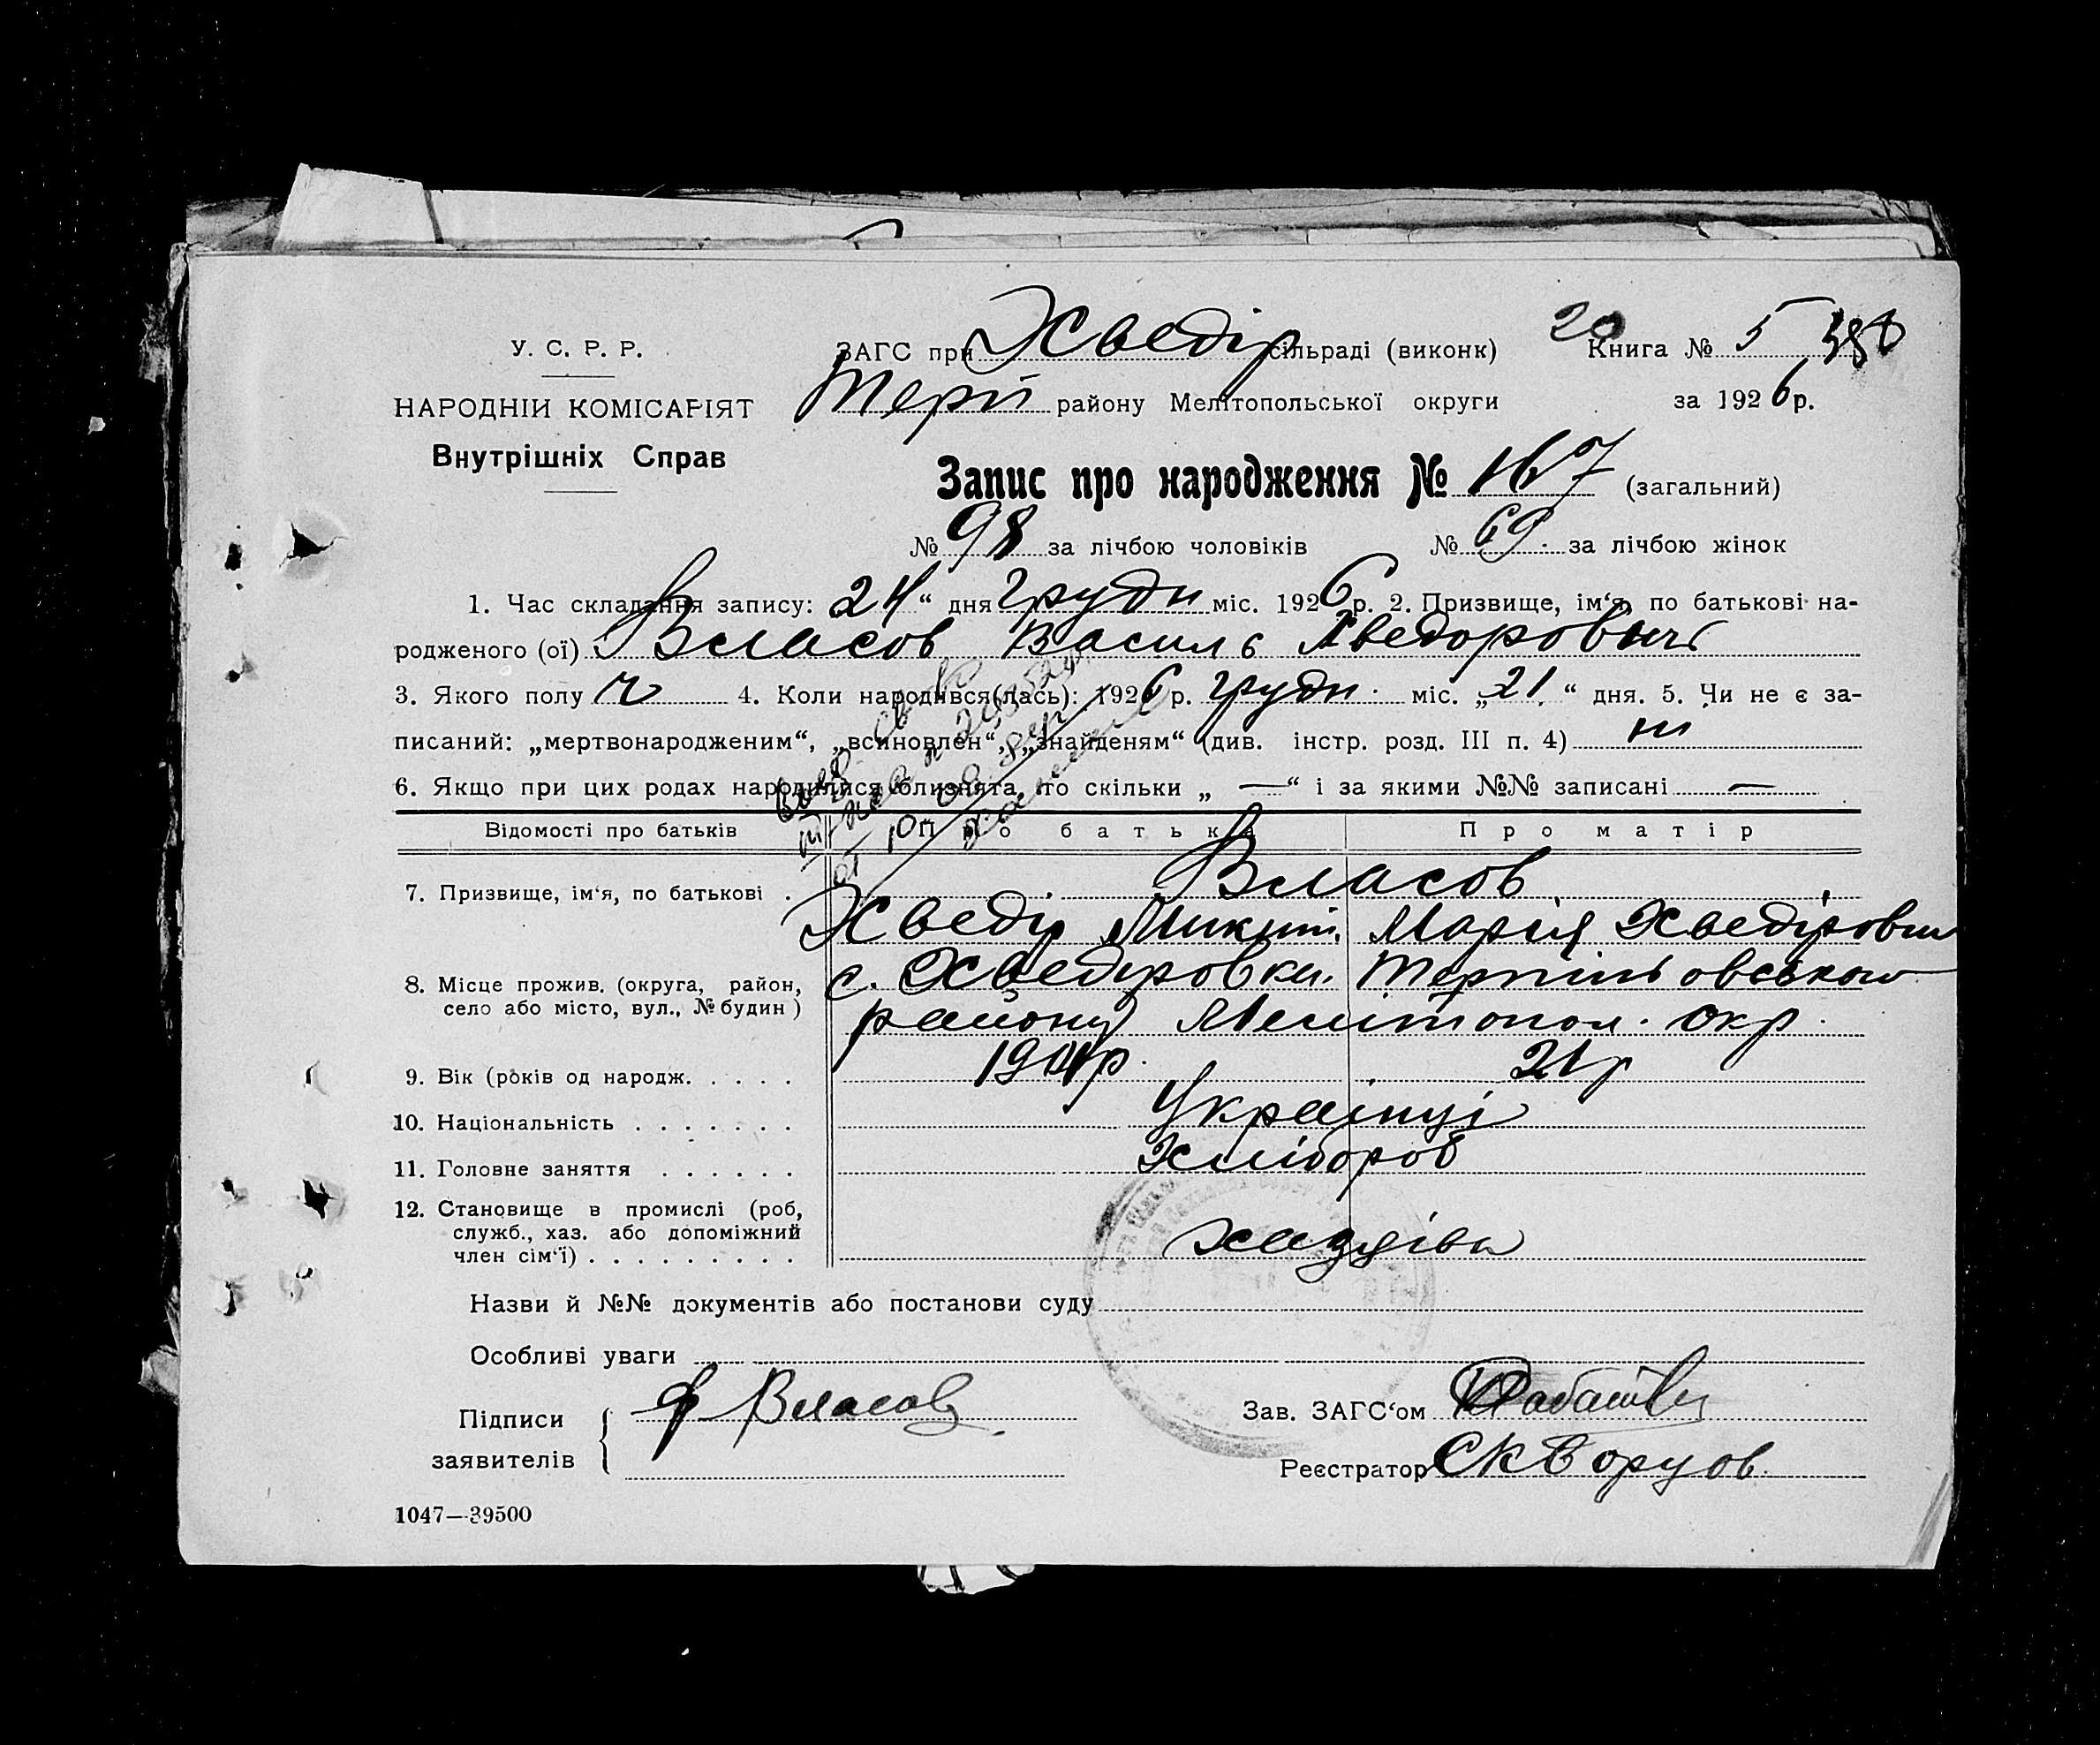 У. С. Р. Р.
НАРОДНІЙ КОМІСАРІЯТ
Внутрішніх Справ
ЗАГС при Хведір сільраді (виконк)
20 Книга № 5
Терп району Мелітопольської округи за 1926 р.
Запис про народження № 167 (загальний)
№ 98 за лічбою чоловіків № 69. за лічбою жінок
1. Час складання запису: 24 “ дня грудн міс. 1926 р. 2. Призвище, ім‘я, по батькові на-
родженого (ої) Власов Василь Хведорович
3. Якого полу ч 4. Коли народився(лась): 1926 р. грудн. міс. „21“ дня. 5. Чи не є за-
писаний: „мертвонародженим“, „всиновлен“, „знайденям“ (див. інстр. розд. III п. 4) ні
6. Якщо при цих родах народилися близнята, то скільки „ — “ і за якими №№ записані —
Відомості про батьків Про батька Про матір
7. Призвище, ім‘я, по батькові . Власов
Хведір Микит. Марія Хведіровна
8. Місце прожив. (округа, район, с. Хведировки. Терпіньовського
село або місто, вул., № будин ) району Мелітопол. окр.
9. Вік (років од народж. . . . . 1904р. 21р
10. Національність . . . . . . . Українці
11. Головне заняття . . . . . . Хлібороб
12. Становище в промислі (роб,
служб., хаз. або допоміжний
член сім‘ї) . . . . . . . . . хазяіва
Назви й №№ документів або постанови суду
Особливі уваги
Підписи ф Власов Зав. ЗАГС‘ом
заявителів Реєстратор Скворцов.
1047—39500